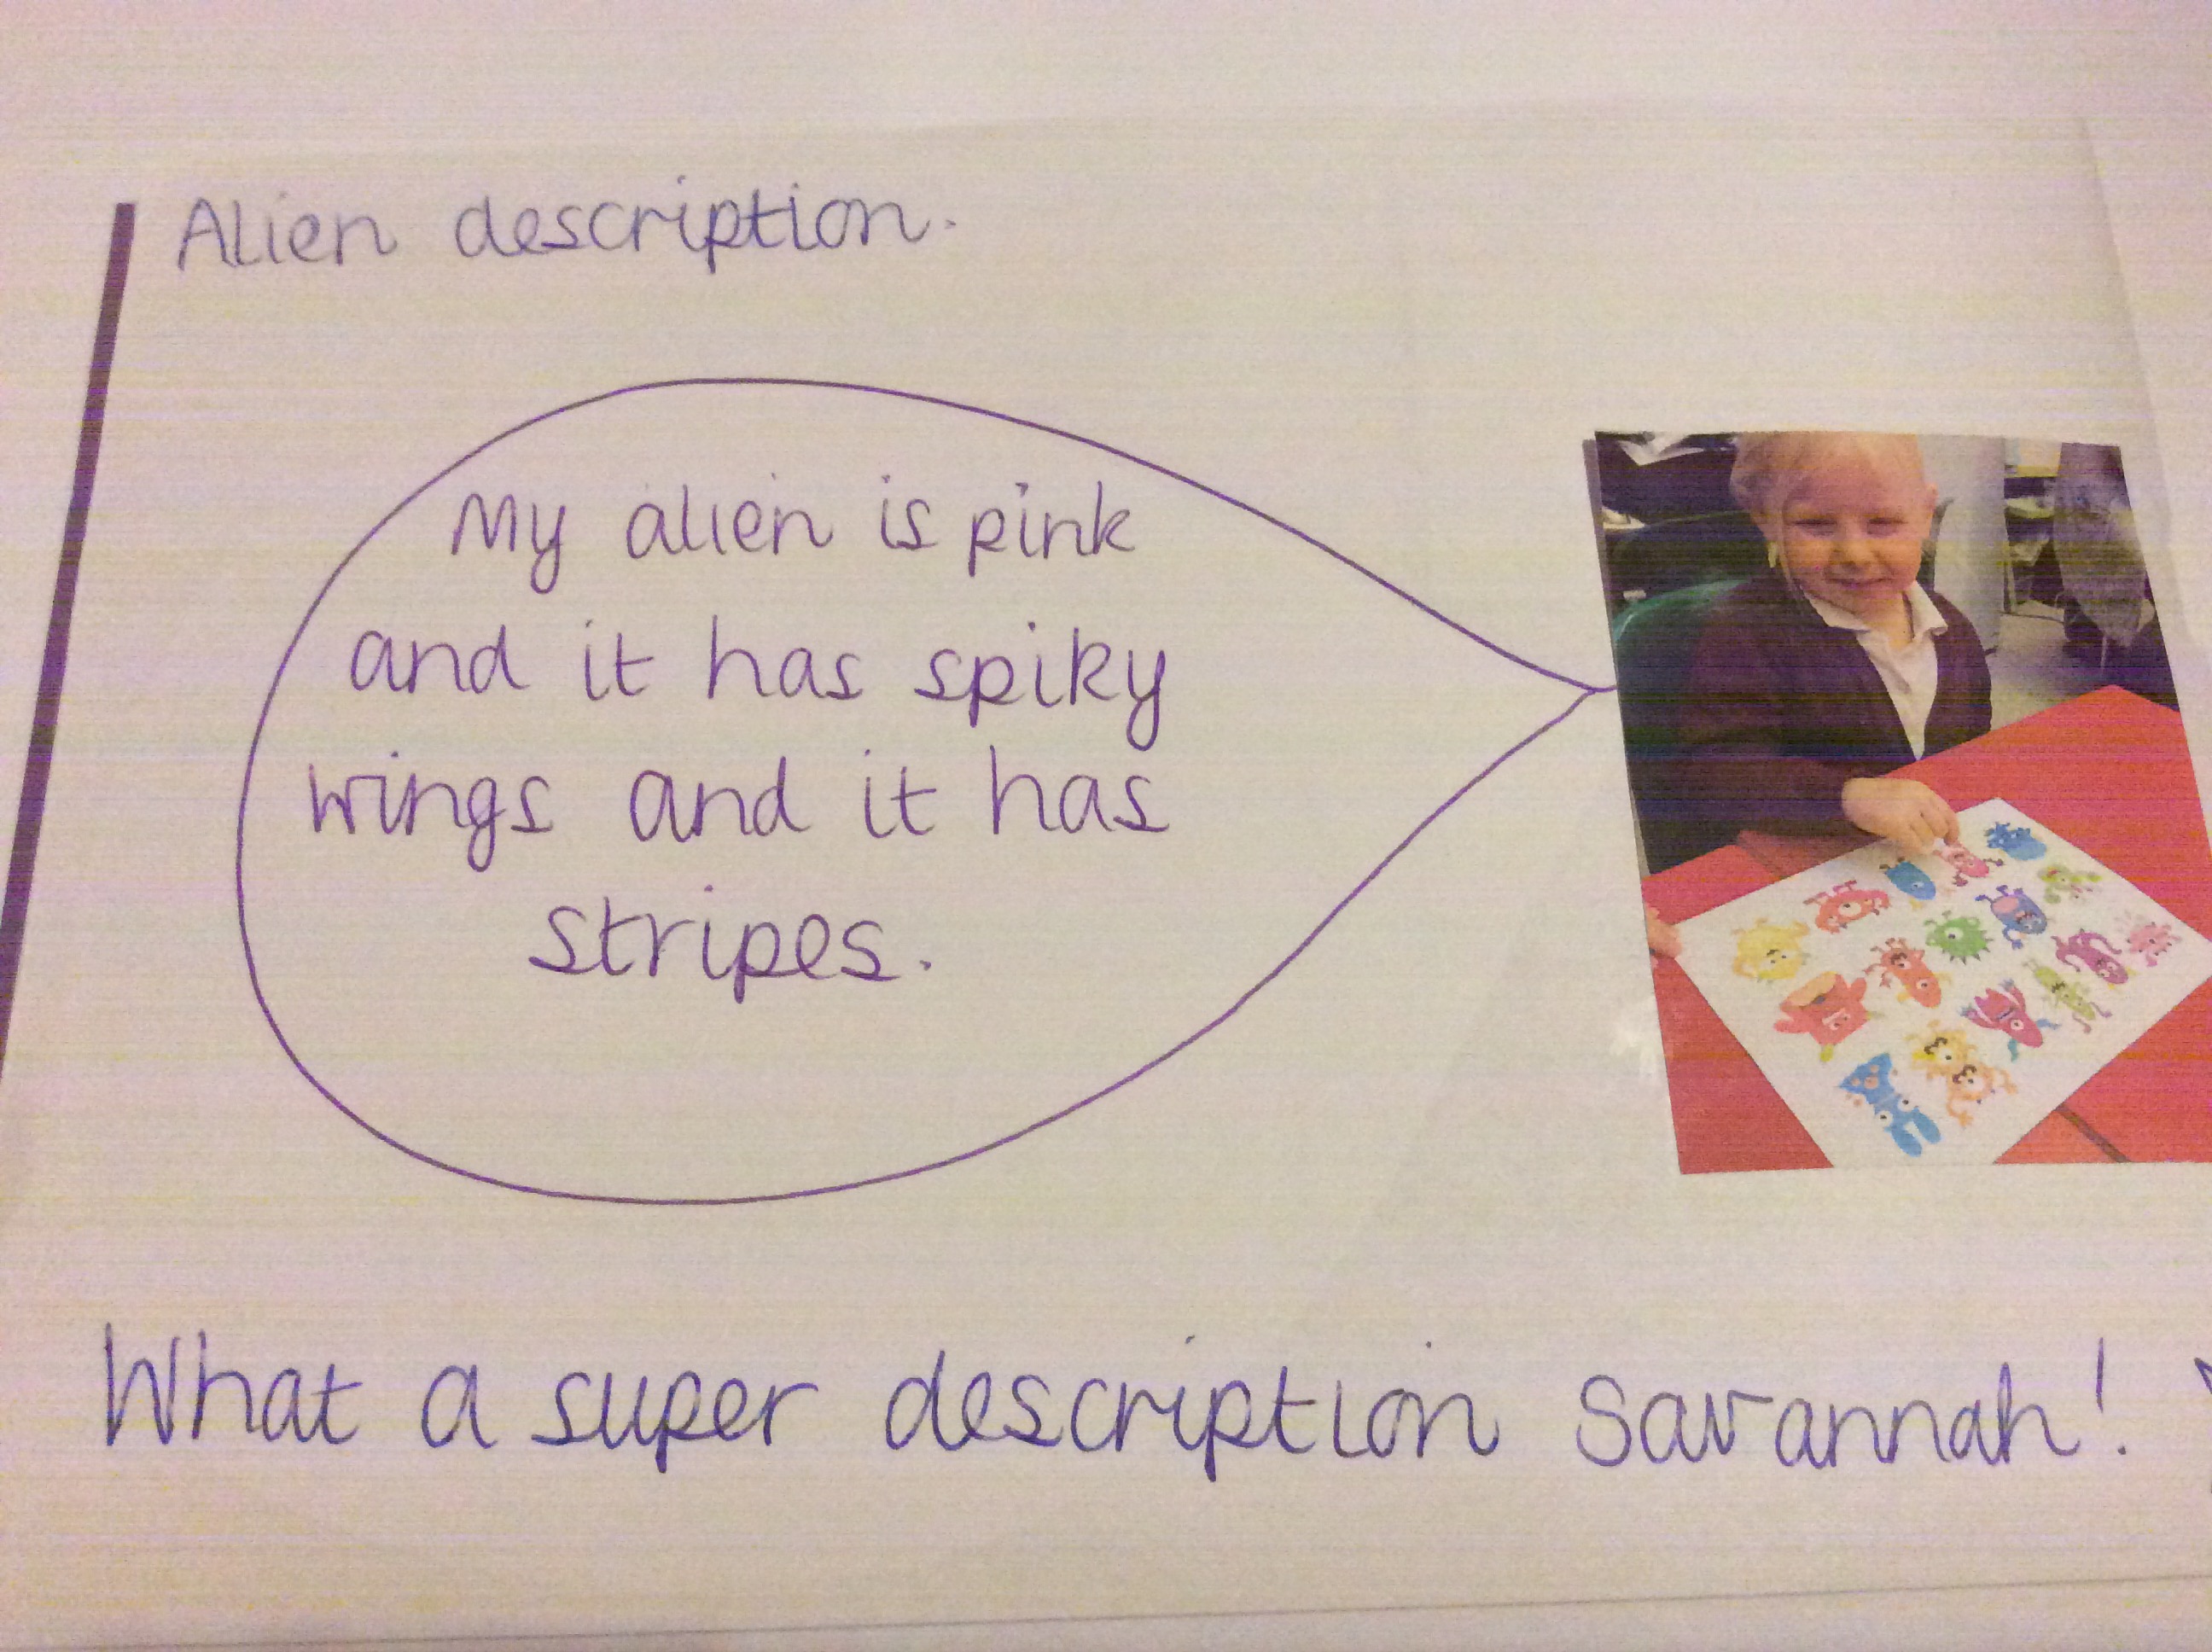 Alien description.
My alien is pink
and it has spiky
wings and it has
stripes.
What a super description Savannah!